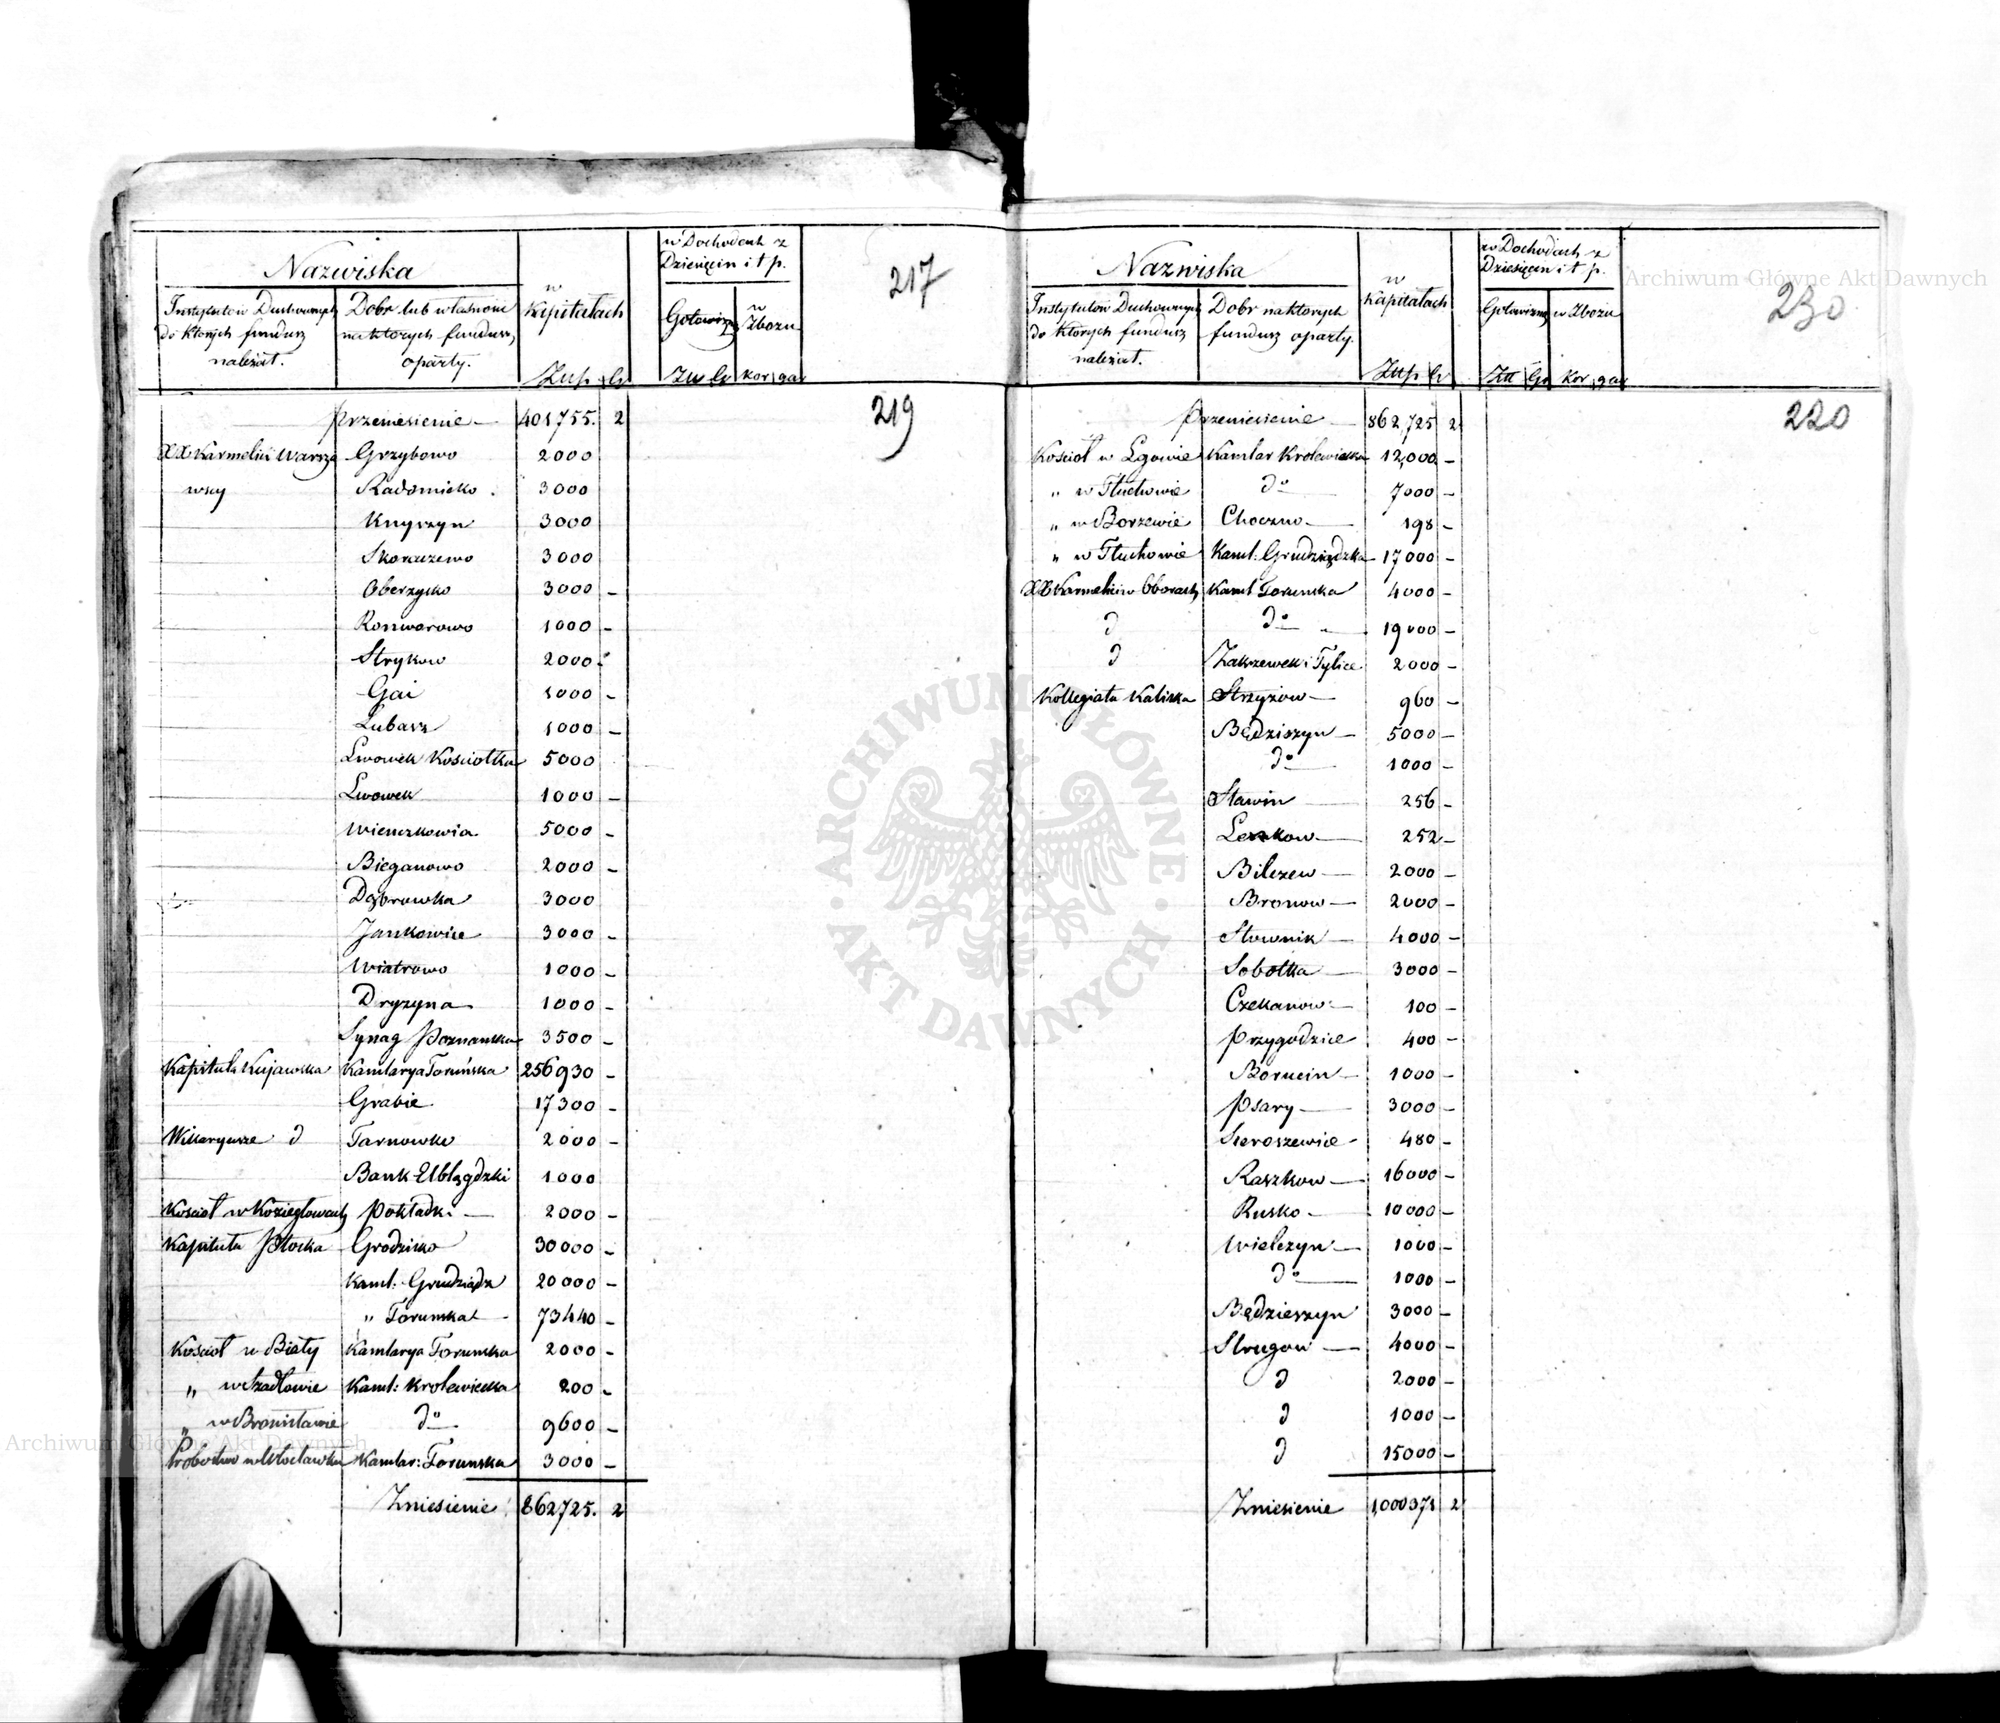 Nazwiska
w Kapitałach
w Dochodach z Dziesięcin i t p.
217
Instytutów Duchownych do których fundusz należał.
Dobr lub własnośc na których fundusz oparty.
Gotowizną
w Zbożu
Złłp. Gr
Złł Gr
Kor gar
219
Przeniesienie 401755. 2
XX Karmelici Warsza Grzybowo 2000
wscy Radomicko 3000
Knyszyn 3000
Skoraczewo 3000
Oberzysko 3000 -
Ronworowo 1000 -
Strykow 2000
Gai 1000 -
Lubasz 1000 -
Lwowek Kosciołka 5000
Lwowek 1000 -
5000 -
Bieganowo 2000 -
Dąbrowka 3000
Jankowice 3000 -
Wiatrowo 1000 -
Dryzyna 1000 -
Synag Poznanska 3500 -
Kapituła Kujawska Kamlarya Toruńska 256930 -
Grabie 17300 -
Wikaryusze d Tarnowko 2000 -
Bank Elblągdzki 1000
Koscioł w Koziegłowach Pokładki 2000 -
Kapituła Płocka Grodzisko 30000 -
Kaml: Grudziądz 20000 -
" Torunska 73440 -
Koscioł w Biały Kamlarya Torunska 2000 -
" w Szadłowie Kaml: Krolewiecka 200 -
" w Bronisławie do 9600 -
Probostwo w Włocławku Kamlar: Torunska 3000 -
Zniesienie 862725. 2
Nazwiska
w Kapitałach
w Dochodach z Dziesięcin i t p.
230
Instytutów Duchownych do których fundusz należał.
Dobr na ktorych fundusz oparty.
Gotowizną
w Zbożu
Złłp. Gr
Złł Gr
Kor gar
220
Przeniesienie 862,725 2
Koscioł w Lgowie Kamlar Krolewiecka 12,000 -
" w Tłuchowie do 7000 -
" w Borzewie Choczno 198 -
" w Tłuchowie Kaml: Grudziądzka 17000 -
XX Karmelici w Oborach Kaml Torunska 4000 -
d do 19000 -
d Zakrzewek i Tylice 2000 -
Kollegiata Kaliska Strzyżow 960 -
Będziszyn 5000 -
do 1000 -
Stawin 256 -
Leszkow 252 -
Bilczew 2000 -
Bronow 2000 -
Słownik 4000 -
Sobotka 3000 -
Czekanow 100 -
Przygodzice 400 -
Borucin 1000 -
Psary 3000 -
Sieroszewice 480 -
Raszkow 16000 -
Rusko 10000 -
Wielczyn 1000 -
do 1000 -
Będzieszyn 3000 -
Strugow 4000 -
d 2000 -
d 1000 -
d 15000 -
Zniesienie 1,000371 2
Archiwum Główne Akt Dawnych
ARCHIWUM GŁÓWNE · AKT DAWNYCH ·
Archiwum Główne Akt Dawnych